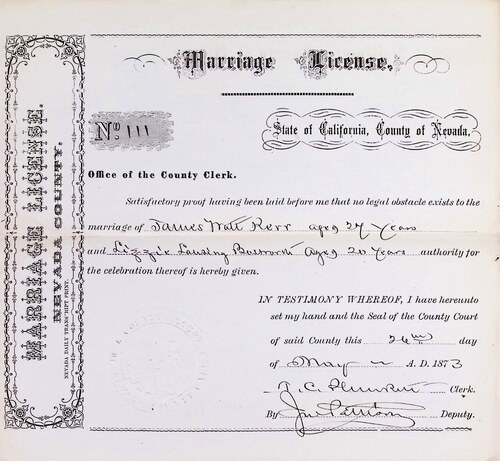 Marriage License.
MARRIAGE LICENSE.
NEVADA COUNTY.
NEVADA DAILY TRANSCRIPT PRINT.
No 111
State of California, County of Nevada.
Office of the County Clerk.
Satisfactory proof having been laid before me that no legal obstacle exists to the
marriage of James Watt Kerr aged 27 Years
and Lizzie Lansing Bosworth Aged 20 Years authority for
the celebration thereof is hereby given.
IN TESTIMONY WHEREOF, I have hereunto
set my hand and the Seal of the County Court
of said County this 26 day
of May A. D. 1873
T. C. Plunkett Clerk.
By Deputy.